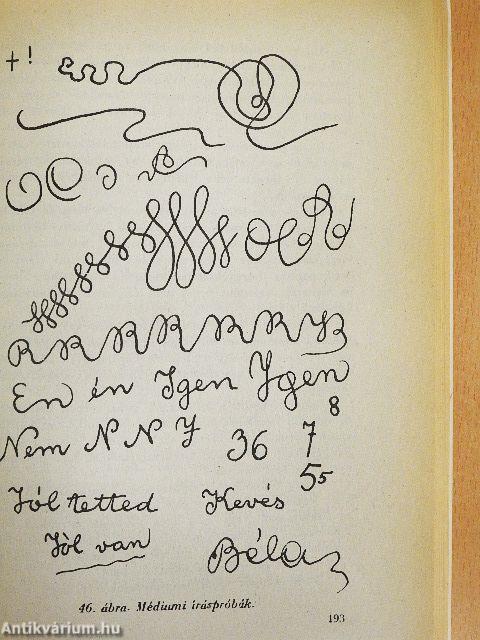 + !
R R R R R R R B
En én Igen Igen
8
Nem N N I 36 7
55
Jól tetted Kevés
Jòl van Béla
46. ábra. Médiumi íráspróbák.
193
Antikvárium.hu